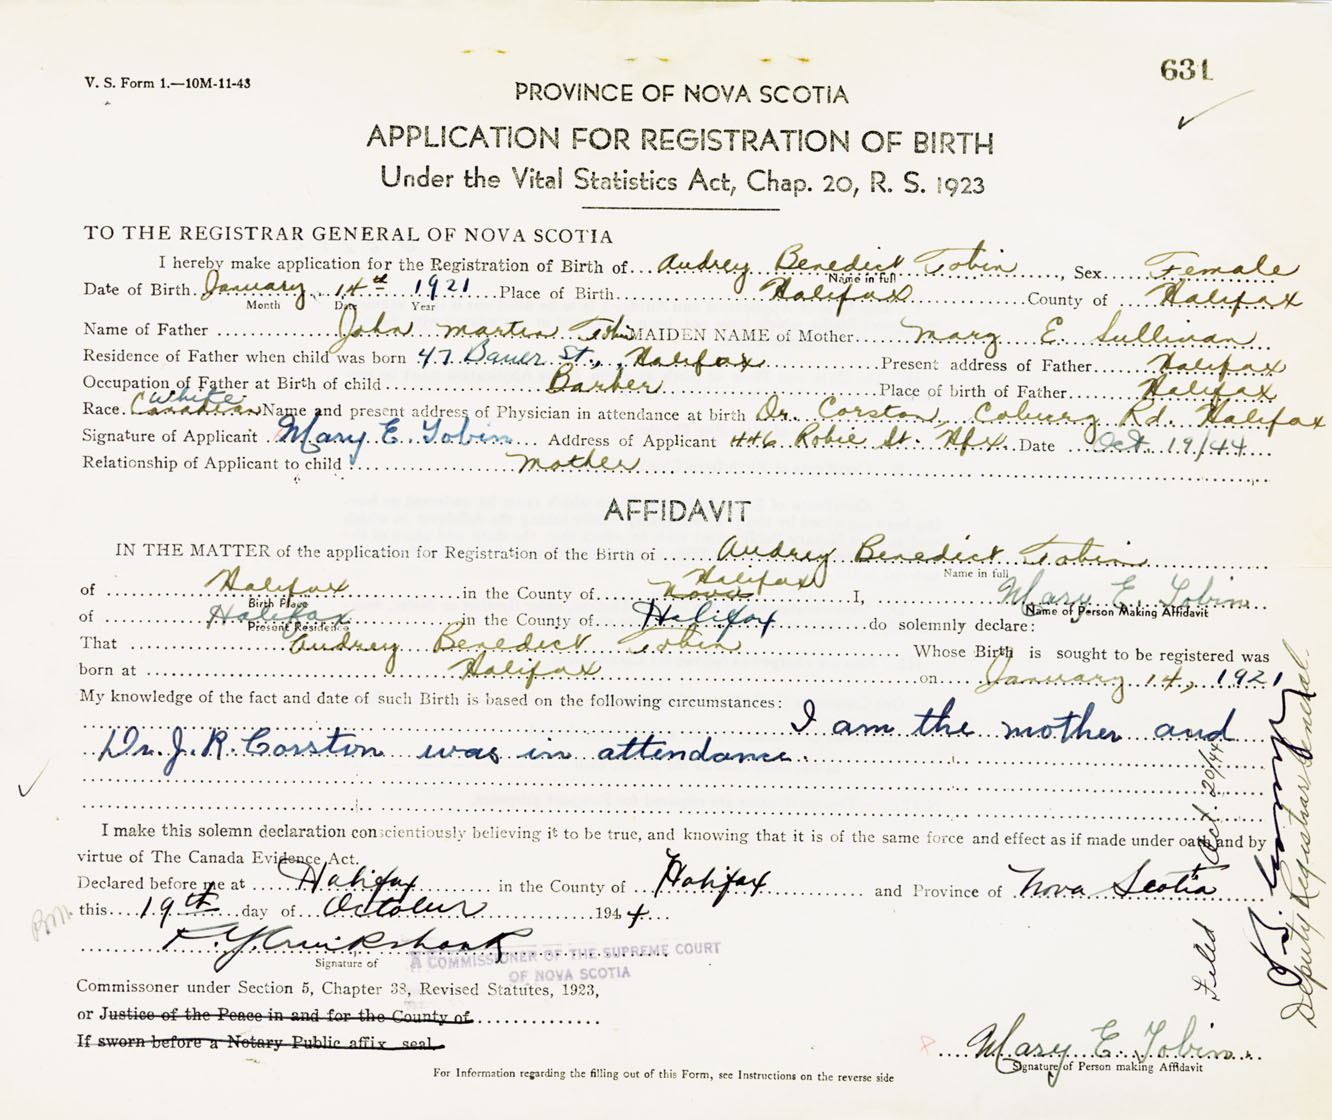 V. S. Form 1.—10M-11-43
631
PROVINCE OF NOVA SCOTIA
APPLICATION FOR REGISTRATION OF BIRTH
Under the Vital Statistics Act, Chap. 20, R. S. 1923
TO THE REGISTRAR GENERAL OF NOVA SCOTIA
I hereby make application for the Registration of Birth of Audrey Benedict Tobin, Sex Female
Name in full
Date of Birth January 14th 1921 Place of Birth Halifax County of Halifax
Month Date Year
Name of Father John Martin Tobin MAIDEN NAME of Mother Mary E. Sullivan
Residence of Father when child was born 47 Bauer St., Halifax Present address of Father Halifax
Occupation of Father at Birth of child Barber Place of birth of Father Halifax
White
Race. Canadian Name and present address of Physician in attendance at birth Dr. Corston, Coburg Rd. Halifax
Signature of Applicant Mary E. Tobin Address of Applicant 446 Robie St. Hfx. Date Oct. 19/44
Relationship of Applicant to child mother
AFFIDAVIT
IN THE MATTER of the application for Registration of the Birth of Audrey Benedict Tobin
Name in full
of Halifax in the County of Nova Halifax I, Mary E. Tobin
Birth Place Name of Person Making Affidavit
of Halifax in the County of Halifax do solemnly declare:
Present Residence
That Audrey Benedict Tobin Whose Birth is sought to be registered was
born at Halifax on January 14, 1921
My knowledge of the fact and date of such Birth is based on the following circumstances:
I am the mother and
Dr. J. R. Corston was in attendance.
I make this solemn declaration conscientiously believing it to be true, and knowing that it is of the same force and effect as if made under oath and by
virtue of The Canada Evidence Act.
Declared before me at Halifax in the County of Halifax and Province of Nova Scotia
this 19th day of October 1944
Signature of
A COMMISSIONER OF THE SUPREME COURT
OF NOVA SCOTIA
Commissoner under Section 5, Chapter 38, Revised Statutes, 1923,
or Justice of the Peace in and for the County of
If sworn before a Notary Public affix seal.
Mary E. Tobin
Signature of Person making Affidavit
For Information regarding the filling out of this Form, see Instructions on the reverse side
Filed Oct. 20/44
Deputy Registrar General.